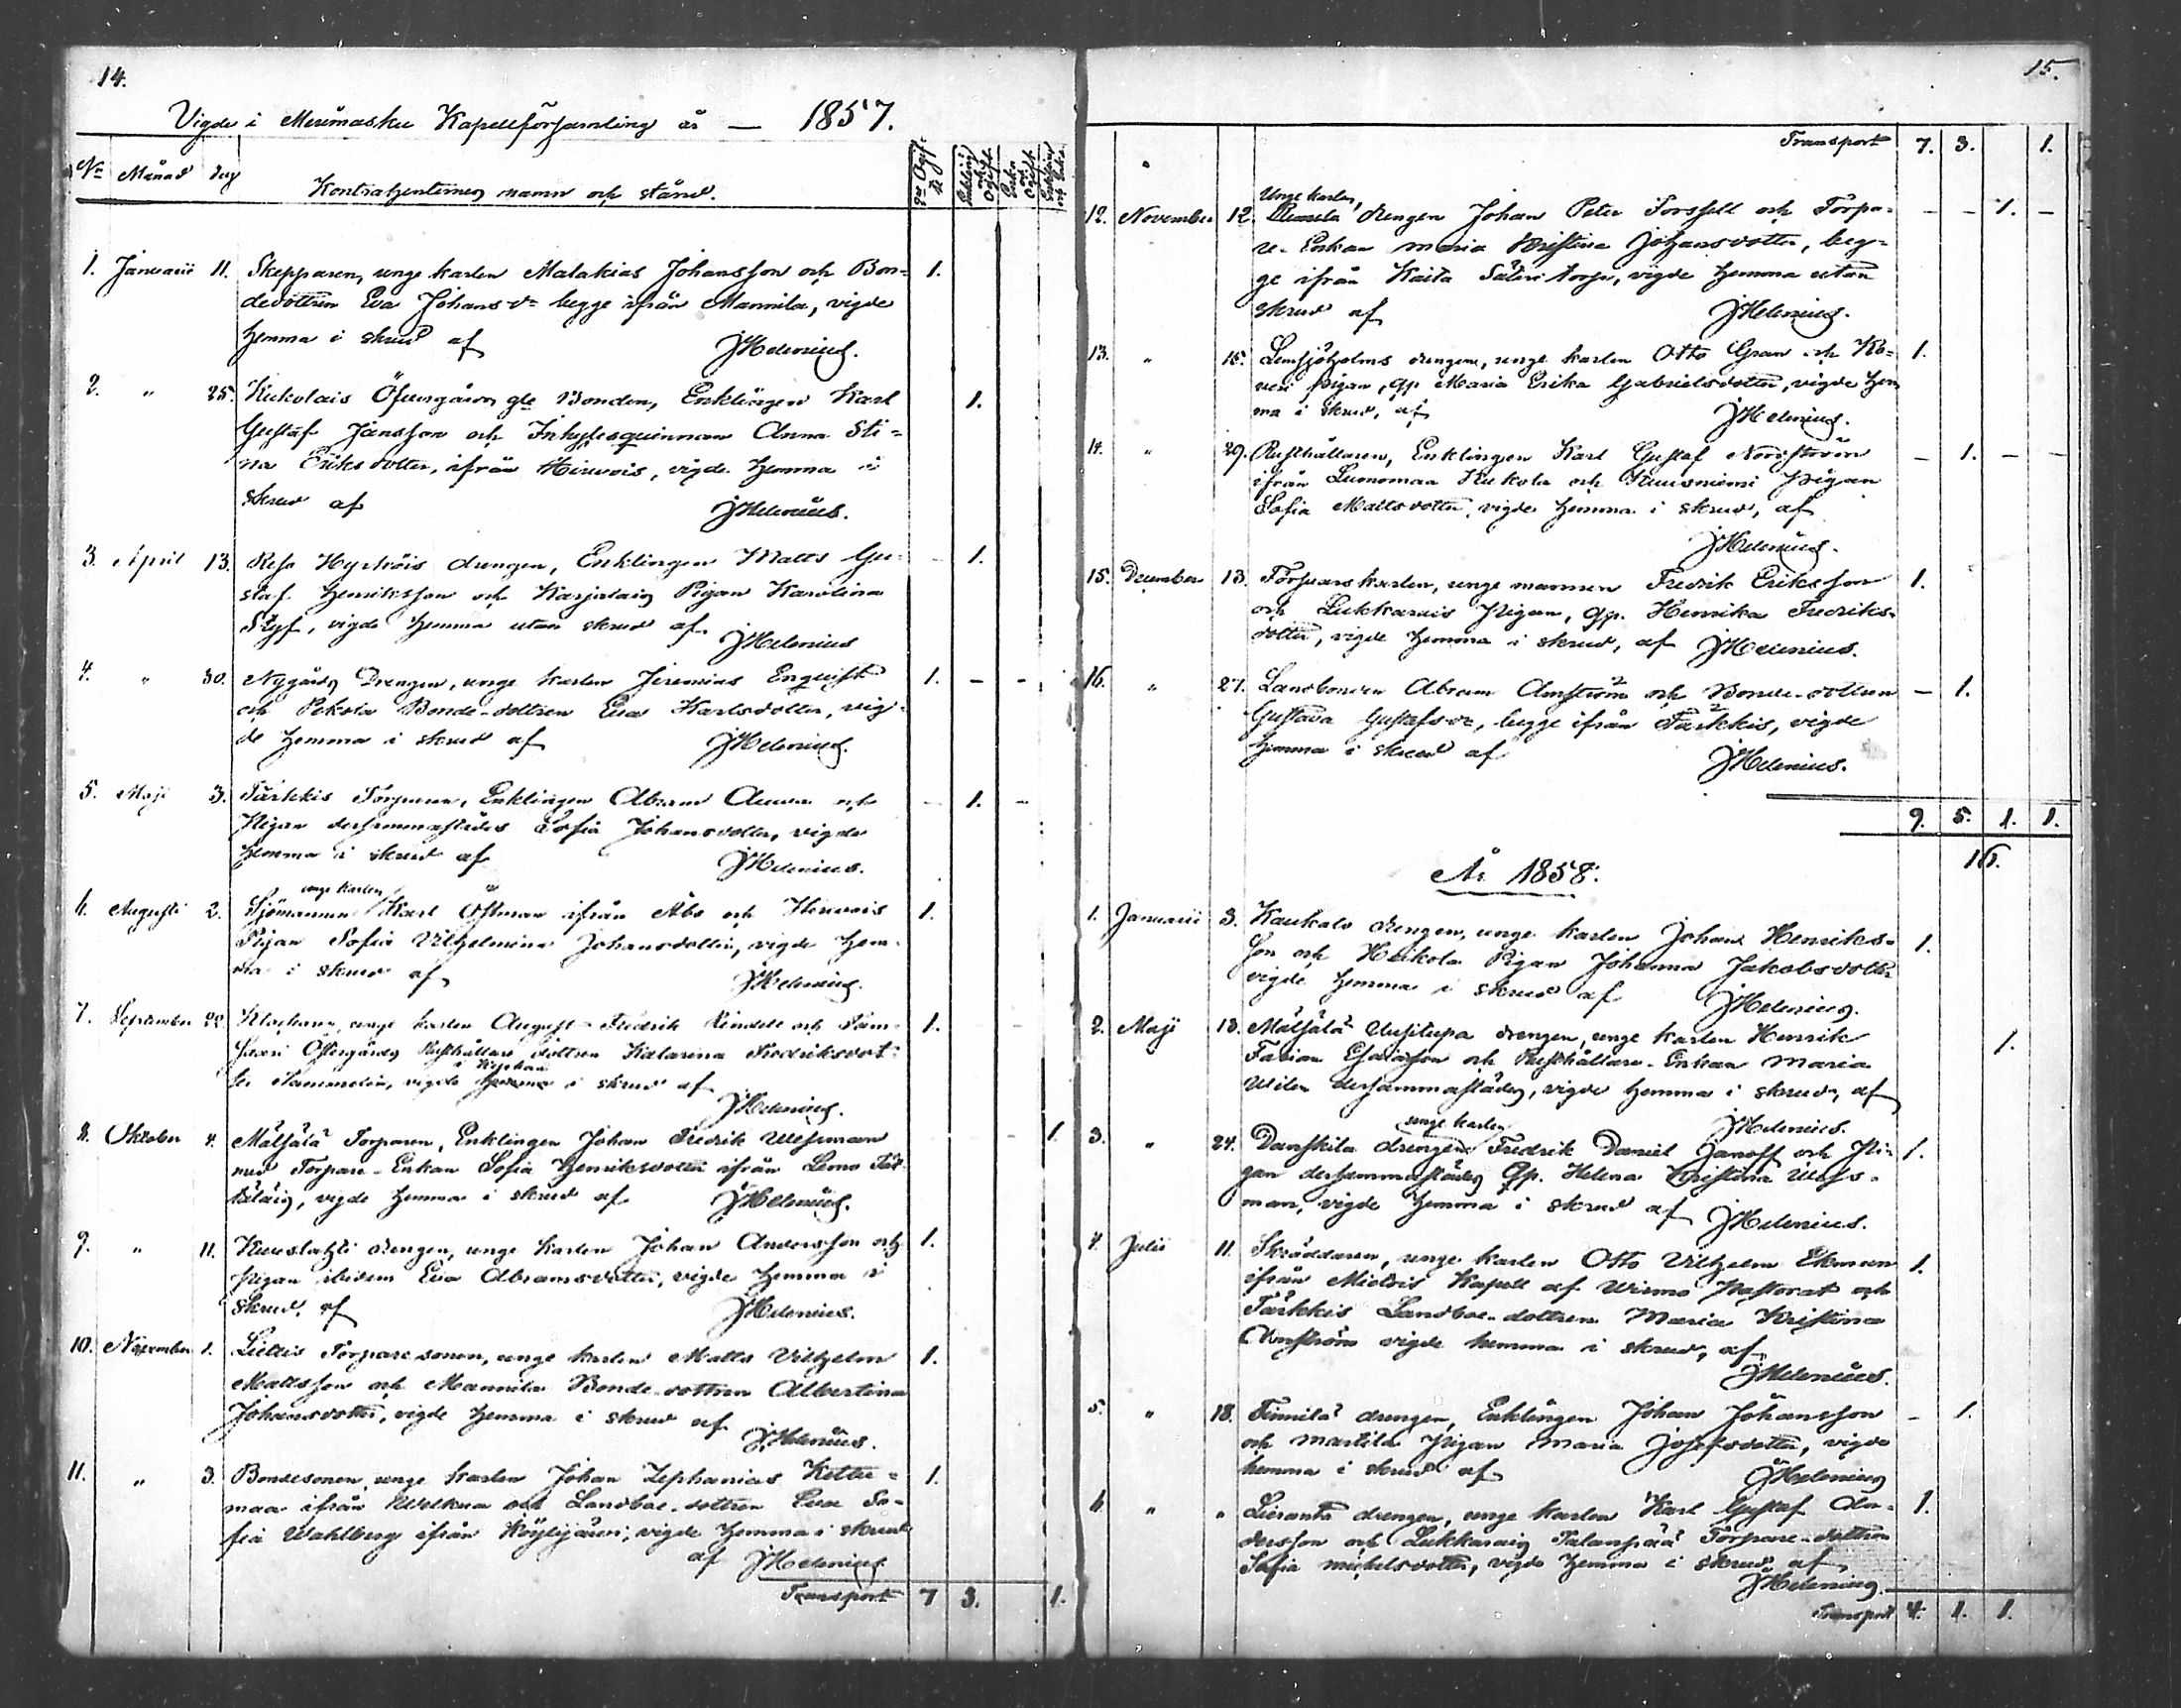 14.
Vigde i Merimasku Kapellförsamling år — 1857.
No Månad dag Kontrahenternes namn och stånd.
1. Januarii 11. Skepparen, unge karlen Malakias Johansson och Bon= 1.
dedottren Eva Johans dr begge ifrån Mannila, vigde
hemma i skrud af JHelenius.
2. " 25. Kukolais Öfvergårds gle Bonden, Enklingen Karl 1.
Gustaf Jansson och Inhyses quinnan Anna Sti=
na Eriksdotter, ifrån Hirvois, vigde hemma i
skrud af JHelenius.
3. April 13. Reso Hyrköis drengen, Enklingen Matts Gu= - 1.
staf Henriksson och Karjalais Pigan Karolina
Styf, vigde hemma utan skrud af JHelenius
4. " 30. Nygårds Drengen, unge karlen Jeremias Enqvist 1. - -
och Pekola Bonde-dottren Eva Karlsdotter, vig=
de hemma i skrud af JHelenius.
5. Maji 3. Tärkkis Torparen, Enklingen Abram och - 1. -
Pigan dersammastädes Sofia Johansdotter, vigde
hemma i skrud af JHelenius.
unge karlen
6. Augusti 2. Sjömannen Karl Östman ifrån Åbo och Hirvois 1.
Pigan Sofia Vilhelmina Johansdotter, vigde hem=
ma i skrud af JHelenius.
7. September 22. Klockaren, unge karlen August Fredrik Lindell och Sam= 1.
saari Östergårds Rusthållare dottren Katarina Fredriksdot=
i Kyrkan
ter Sammelin, vigde hemma i skrud af
JHelenius.
8. Oktober 4. Mälsälä Torparen, Enklingen Johan Fredrik Wessman 1.
med Torpare-Enkan Sofia Henriksdotter ifrån Lemo
vigde hemma i skrud af JHelenius.
9. " 11. Kuuslahti drengen, unge karlen Johan Andersson och 1.
Pigan ibidem Eva Abramsdotter, vigde hemma i
skrud, af JHelenius.
10. November 1. Torpare sonen, unge karlen Matts Vilhelm 1.
Mattsson och Mannila Bonde-dottren Albertina
Johansdotter, vigde hemma i skrud af
JHelenius.
11. " 3. Bondesonen, unge karlen Johan Zephanias Kettu= 1.
maa ifrån Welkua och Landboe-dottren Eva So=
fia Wahlberg ifrån vigde hemma i skrud
af JHelenius
Transport 7 3. 1.
15.
Transport 7. 3. 1.
Unge karlen,
12. November 12. drengen Johan Peter Forssell och Torpa= - - 1. -
re-Enkan Maria Kristina Johansdotter, beg=
ge ifrån Kaita Säteri torp, vigde hemma utan
skrud af JHelenius.
13. " 15. Lemsjöholms drengen, unge karlen Otto Gran och 1.
pigan, Qp. Maria Erika Gabrielsdotter, vigde hem
ma i skrud, af JHelenius.
14. " 29. Rusthållaren, Enklingen Karl Gustaf Nordström - 1. - -
ifrån Luonnonmaa Kukola och Kuusniemi Pigan
Sofia Mattsdotter, vigde hemma i skrud, af
JHelenius.
15. December 13. Torpars karlen, unge mannen Fredrik Eriksson 1.
och Lukkarais Pigan, Qp. Henrika Fredriks=
dotter, vigde hemma i skrud, af JHelenius.
16. " 27. Landbonden Abram Amström och Bonde-dottren - 1.
Gustava Gustafs dr, begge ifrån Tärkkis, vigde
hemma i skrud af
JHelenius.
9. 5. 1. 1.
16.
År 1858.
1. Januarii 3. Kaukalo drengen, unge karlen Johan Henriks= 1.
son och Heikola Pigan Johanna Jakobsdotter
vigde hemma i skrud af JHelenius.
2. Maji 13. Mälsälä Uusitupa drengen, unge karlen Henrik 1.
Fabian Esaiasson och Rusthållare-Enkan Maria
Wilen dersammastädes, vigde hemma i skrud, af
JHelenius.
unge karlen
3. " 24. Danskila drengen Fredrik Daniel Janoff och Pi= 1.
gan dersammastädes Qp. Helena Kristina Wess=
man, vigde hemma i skrud af JHelenius.
4. Julii 11. Skräddaren, unge karlen Otto Vilhelm Ekman 1.
ifrån Mietois Kapell af Wirmo Pastorat och
Tärkkis Landboe-dottren Maria Kristina
Amström vigde hemma i skrud, af
JHelenius.
5. " 18. Finnilä drengen, Enklingen Johan Johansson - 1.
och Martila Pigan Maria Josefsdotter, vigde
hemma i skrud af JHelenius
6. " " Lieranta drengen, unge karlen Karl Gustaf An= 1.
dersson och Lukkarais Salanpää Torpare-dottren
Sofia Mickelsdotter, vigde hemma i skrud af
JHelenius.
Transport 4. 1. 1.